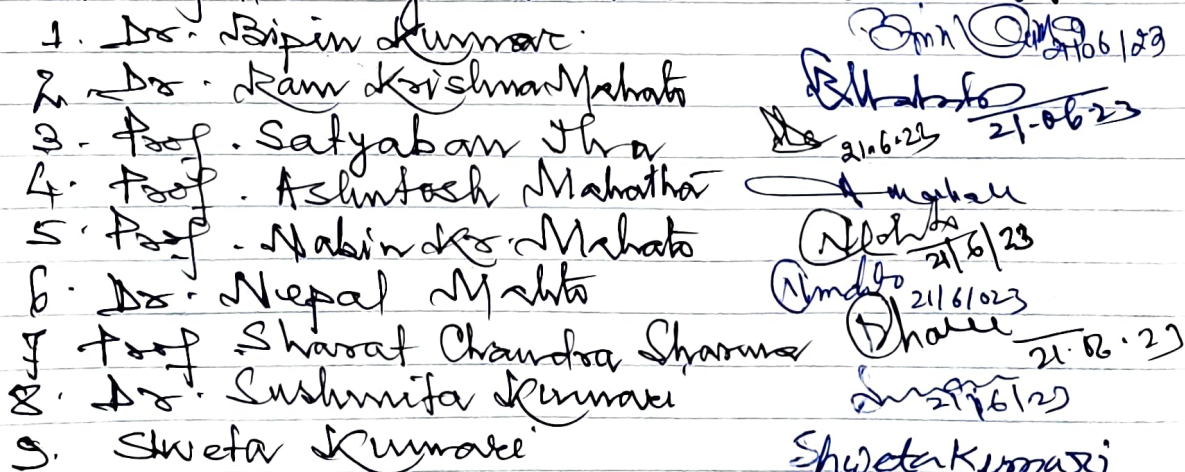 1. Dr. Bipin Kumar 21/06/23
2. Dr. Ram Krishna Mahato 21-06-23
3. Prof. Satyaban Jha 21.6.23
4. Prof. Ashutosh Mahatha
5. Prof. Nabin Kr. Mahato 21/6/23
6. Dr. Nepal Mahto 21/6/023
7 Prof Sharat Chandra Sharma 21.06.23
8. Dr. Sushmita Kumari 21/6/23
9. Shweta Kumari Shweta Kumari